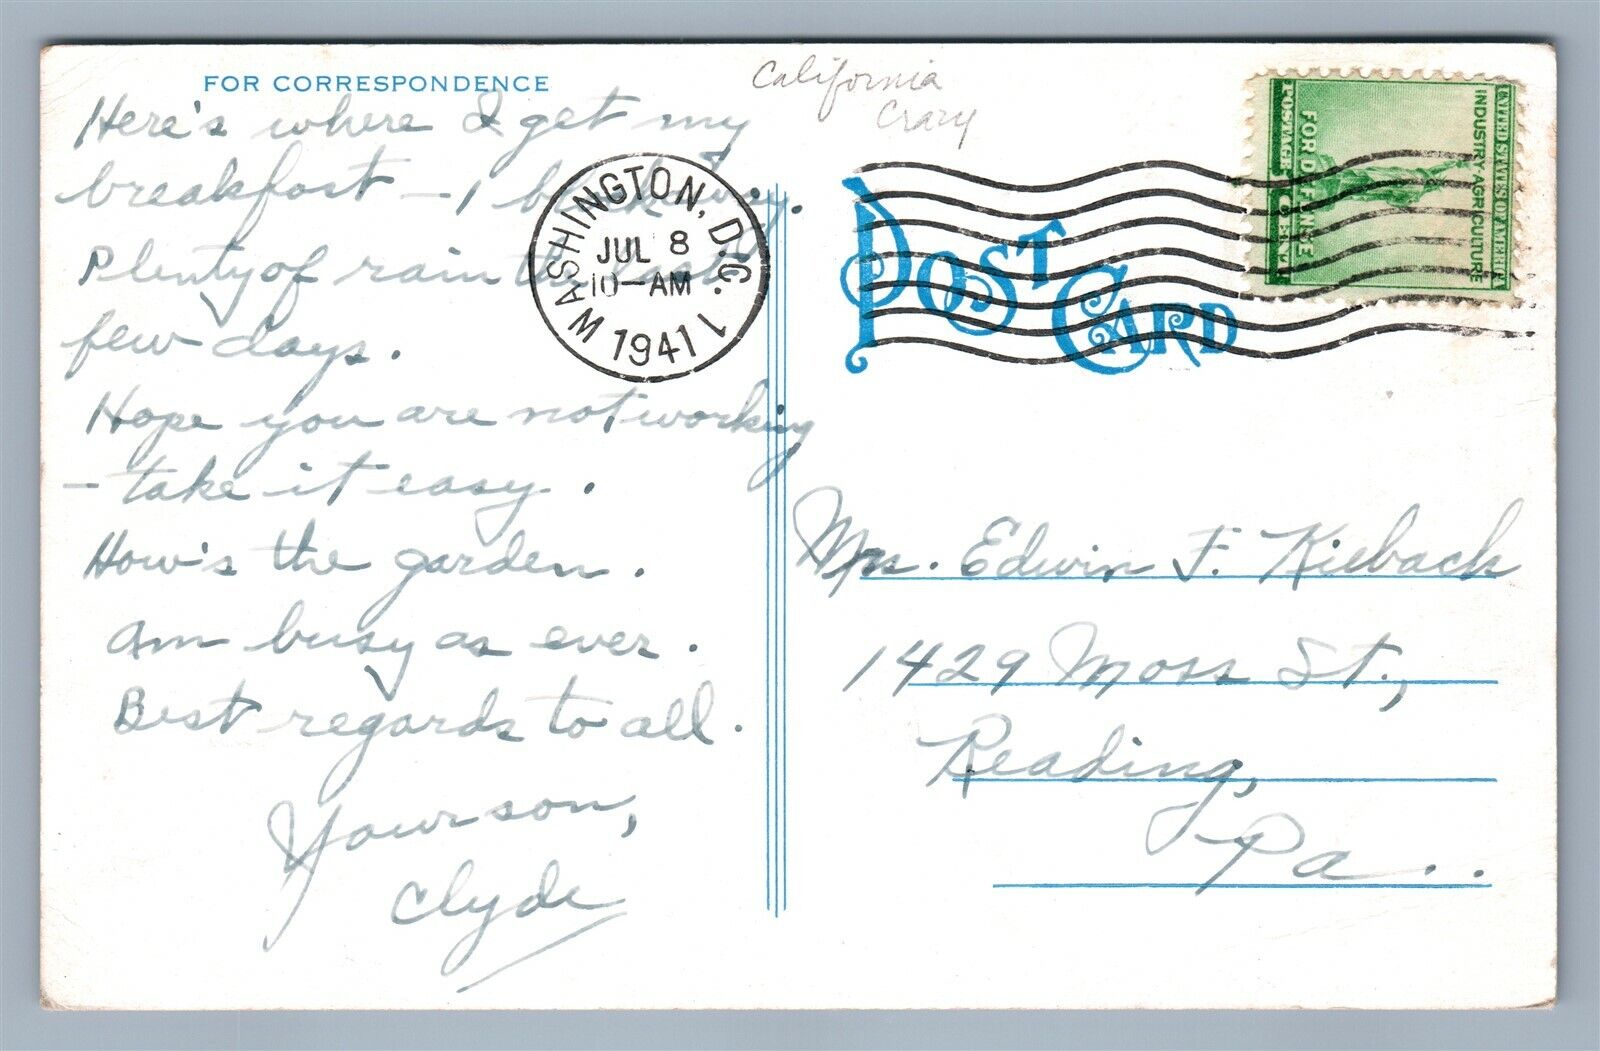 FOR CORRESPONDENCE
California
Crazy
Here's where I get my
breakfast - 1 block away.
Plenty of rain the last
few days.
Hope you are not working
- take it easy.
How's the garden.
Am busy as ever.
Best regards to all.
Your son,
Clyde
WASHINGTON, D.C. 1
JUL 8
10-AM
1941
POST CARD
UNITED STATES OF AMERICA
INDUSTRY AGRICULTURE
FOR DEFENSE
POSTAGE 1 CENT
Mrs. Edwin F. Kieback
1429 Moss St.,
Reading,
Pa.